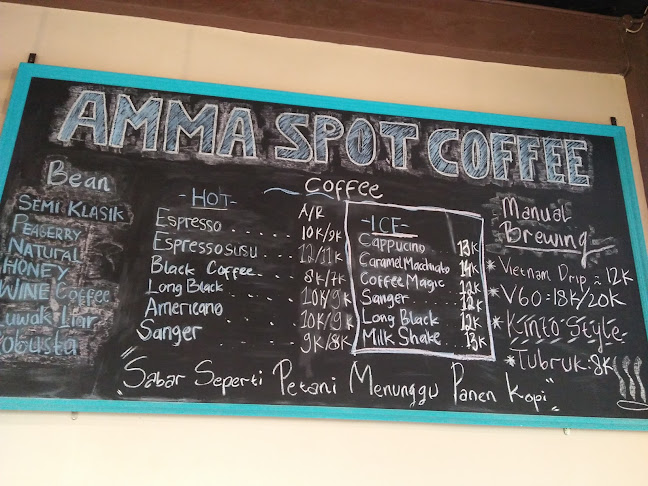 AMMA SPOT COFFEE
Bean
SEMI KLASIK
PEABERRY
NATURAL
HONEY
WINE Coffee
Luwak Liar
Robusta
Coffee
-HOT-
A/R
Espresso ..... 10K/9K
Espresso susu ... 12/11K
Black Coffee- .. 8K/7K
Long Black .... 10K/9K
Americano .... 10K/9K
Sanger .... 9K/8K
-ICE-
Cappucino .... 13K
Caramel Macchiato 14K
Coffee Magic .... 12K
Sanger .... 12K
Long Black ... 12K
Milk Shake .... 13K
Manual
Brewing
* Vietnam Drip = 12K
* V60 = 18K/20K
* Kinto Style
* Tubruk: 8K
"Sabar Seperti Petani Menunggu Panen Kopi"